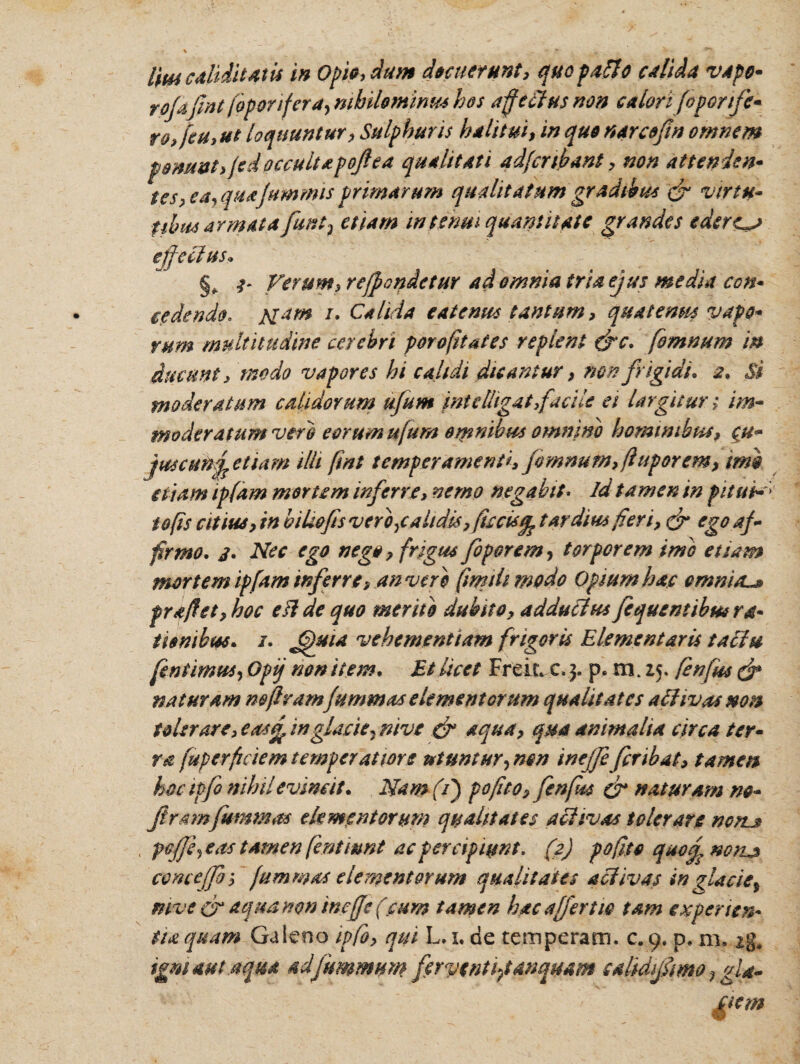 lius caliditatis in Opio, dum docuerunt, quo pacto calida vapo-
rosa sint soporifera, nihilominus hos affectus non calori soporife-
ro, seu, ut loquuntur, Sulphuris halitui, in quo narcosin omnem
ponunt, sed occultæ postea qualitati adscribant, non attenden-
tes, ea, quæ summis primarum qualitatum gradibus & virtu-
tibus armata sunt, etiam in tenui quantitate grandes edere
effectus.
§. 3. Verum, respondetur ad omnia tria ejus media con-
cedendo. Nam 1. Calida eatenus tantum, quatenus vapo-
rum multitudine cerebri porositates replent &c. somnum in
ducunt, modo vapores hi calidi dicantur, non frigidi. 2. Si
moderatum calidorum usum intelligat, facile ei largitur; im-
moderatum verò eorum usum omnibus omnino hominibus, cu-
juscunq; etiam illi sint temperamenti, somnum, stuporem, imò
etiam ipsam mortem inferre, nemo negabit. Id tamen in pitui-
tosis citius, in biliosis verò, calidis, siccisq; tardius fieri, & ego af-
firmo. 3. Nec ego nego, frigus soporem, torporem imò etiam
mortem ipsam inferre, an verò simili modo Opium hæc omnia
præstet, hoc est de quo meritò dubito, adductus sequentibus ra-
tionibus. 1. Quia vehementiam frigoris Elementaris tactu
sentimus, Opij non item. Et licet Freit. c. 3. p. m. 25. sensus &
naturam nostram summas elementorum qualitates activas non
tolerare, easq; in glacie, nive & aqua, qua animalia circa ter-
ra superficiem temperatiore utuntur, non inesse scribat, tamen
hoc ipso nihil evincit. Nam (1) posito, sensus & naturam no-
stram summas elementorum qualitates activas tolerare non
posse, eas tamen sentiunt ac percipiunt. (2) posito quoq; non
concesso; summas elementorum qualitates activas in glacie,
nive & aqua non inesse (cum tamen hæc assertio tam experien-
tiæ quam Galeno ipso, qui L. 1. de temperam. c. 9. p. m. 28.
igni aut aqua ad summum ferventi, tanquam calidissimo, gla-
ciem